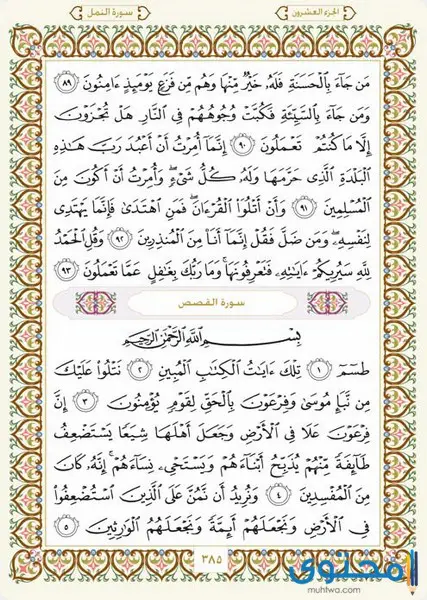 الجزء العشرون
سورة النمل
مَن جَآءَ بِٱلْحَسَنَةِ فَلَهُۥ خَيْرٌ مِّنْهَا وَهُم مِّن فَزَعٍ يَوْمَئِذٍ ءَامِنُونَ ٨٩
وَمَن جَآءَ بِٱلسَّيِّئَةِ فَكُبَّتْ وُجُوهُهُمْ فِى ٱلنَّارِ هَلْ تُجْزَوْنَ
إِلَّا مَا كُنتُمْ تَعْمَلُونَ ٩٠ إِنَّمَآ أُمِرْتُ أَنْ أَعْبُدَ رَبَّ هَٰذِهِ
ٱلْبَلْدَةِ ٱلَّذِى حَرَّمَهَا وَلَهُۥ كُلُّ شَىْءٍ ۖ وَأُمِرْتُ أَنْ أَكُونَ مِنَ
ٱلْمُسْلِمِينَ ٩١ وَأَنْ أَتْلُوَا۟ ٱلْقُرْءَانَ ۖ فَمَنِ ٱهْتَدَىٰ فَإِنَّمَا يَهْتَدِى
لِنَفْسِهِۦ ۖ وَمَن ضَلَّ فَقُلْ إِنَّمَآ أَنَا۠ مِنَ ٱلْمُنذِرِينَ ٩٢ وَقُلِ ٱلْحَمْدُ
لِلَّهِ سَيُرِيكُمْ ءَايَٰتِهِۦ فَتَعْرِفُونَهَا ۚ وَمَا رَبُّكَ بِغَٰفِلٍ عَمَّا تَعْمَلُونَ ٩٣
سورة القصص
بِسْمِ ٱللَّهِ ٱلرَّحْمَٰنِ ٱلرَّحِيمِ
طسٓمٓ ١ تِلْكَ ءَايَٰتُ ٱلْكِتَٰبِ ٱلْمُبِينِ ٢ نَتْلُوا۟ عَلَيْكَ
مِن نَّبَإِ مُوسَىٰ وَفِرْعَوْنَ بِٱلْحَقِّ لِقَوْمٍ يُؤْمِنُونَ ٣ إِنَّ
فِرْعَوْنَ عَلَا فِى ٱلْأَرْضِ وَجَعَلَ أَهْلَهَا شِيَعًا يَسْتَضْعِفُ
طَآئِفَةً مِّنْهُمْ يُذَبِّحُ أَبْنَآءَهُمْ وَيَسْتَحْىِۦ نِسَآءَهُمْ ۚ إِنَّهُۥ كَانَ
مِنَ ٱلْمُفْسِدِينَ ٤ وَنُرِيدُ أَن نَّمُنَّ عَلَى ٱلَّذِينَ ٱسْتُضْعِفُوا۟
فِى ٱلْأَرْضِ وَنَجْعَلَهُمْ أَئِمَّةً وَنَجْعَلَهُمُ ٱلْوَٰرِثِينَ ٥
٣٨٥
محتوى
muhtwa.com